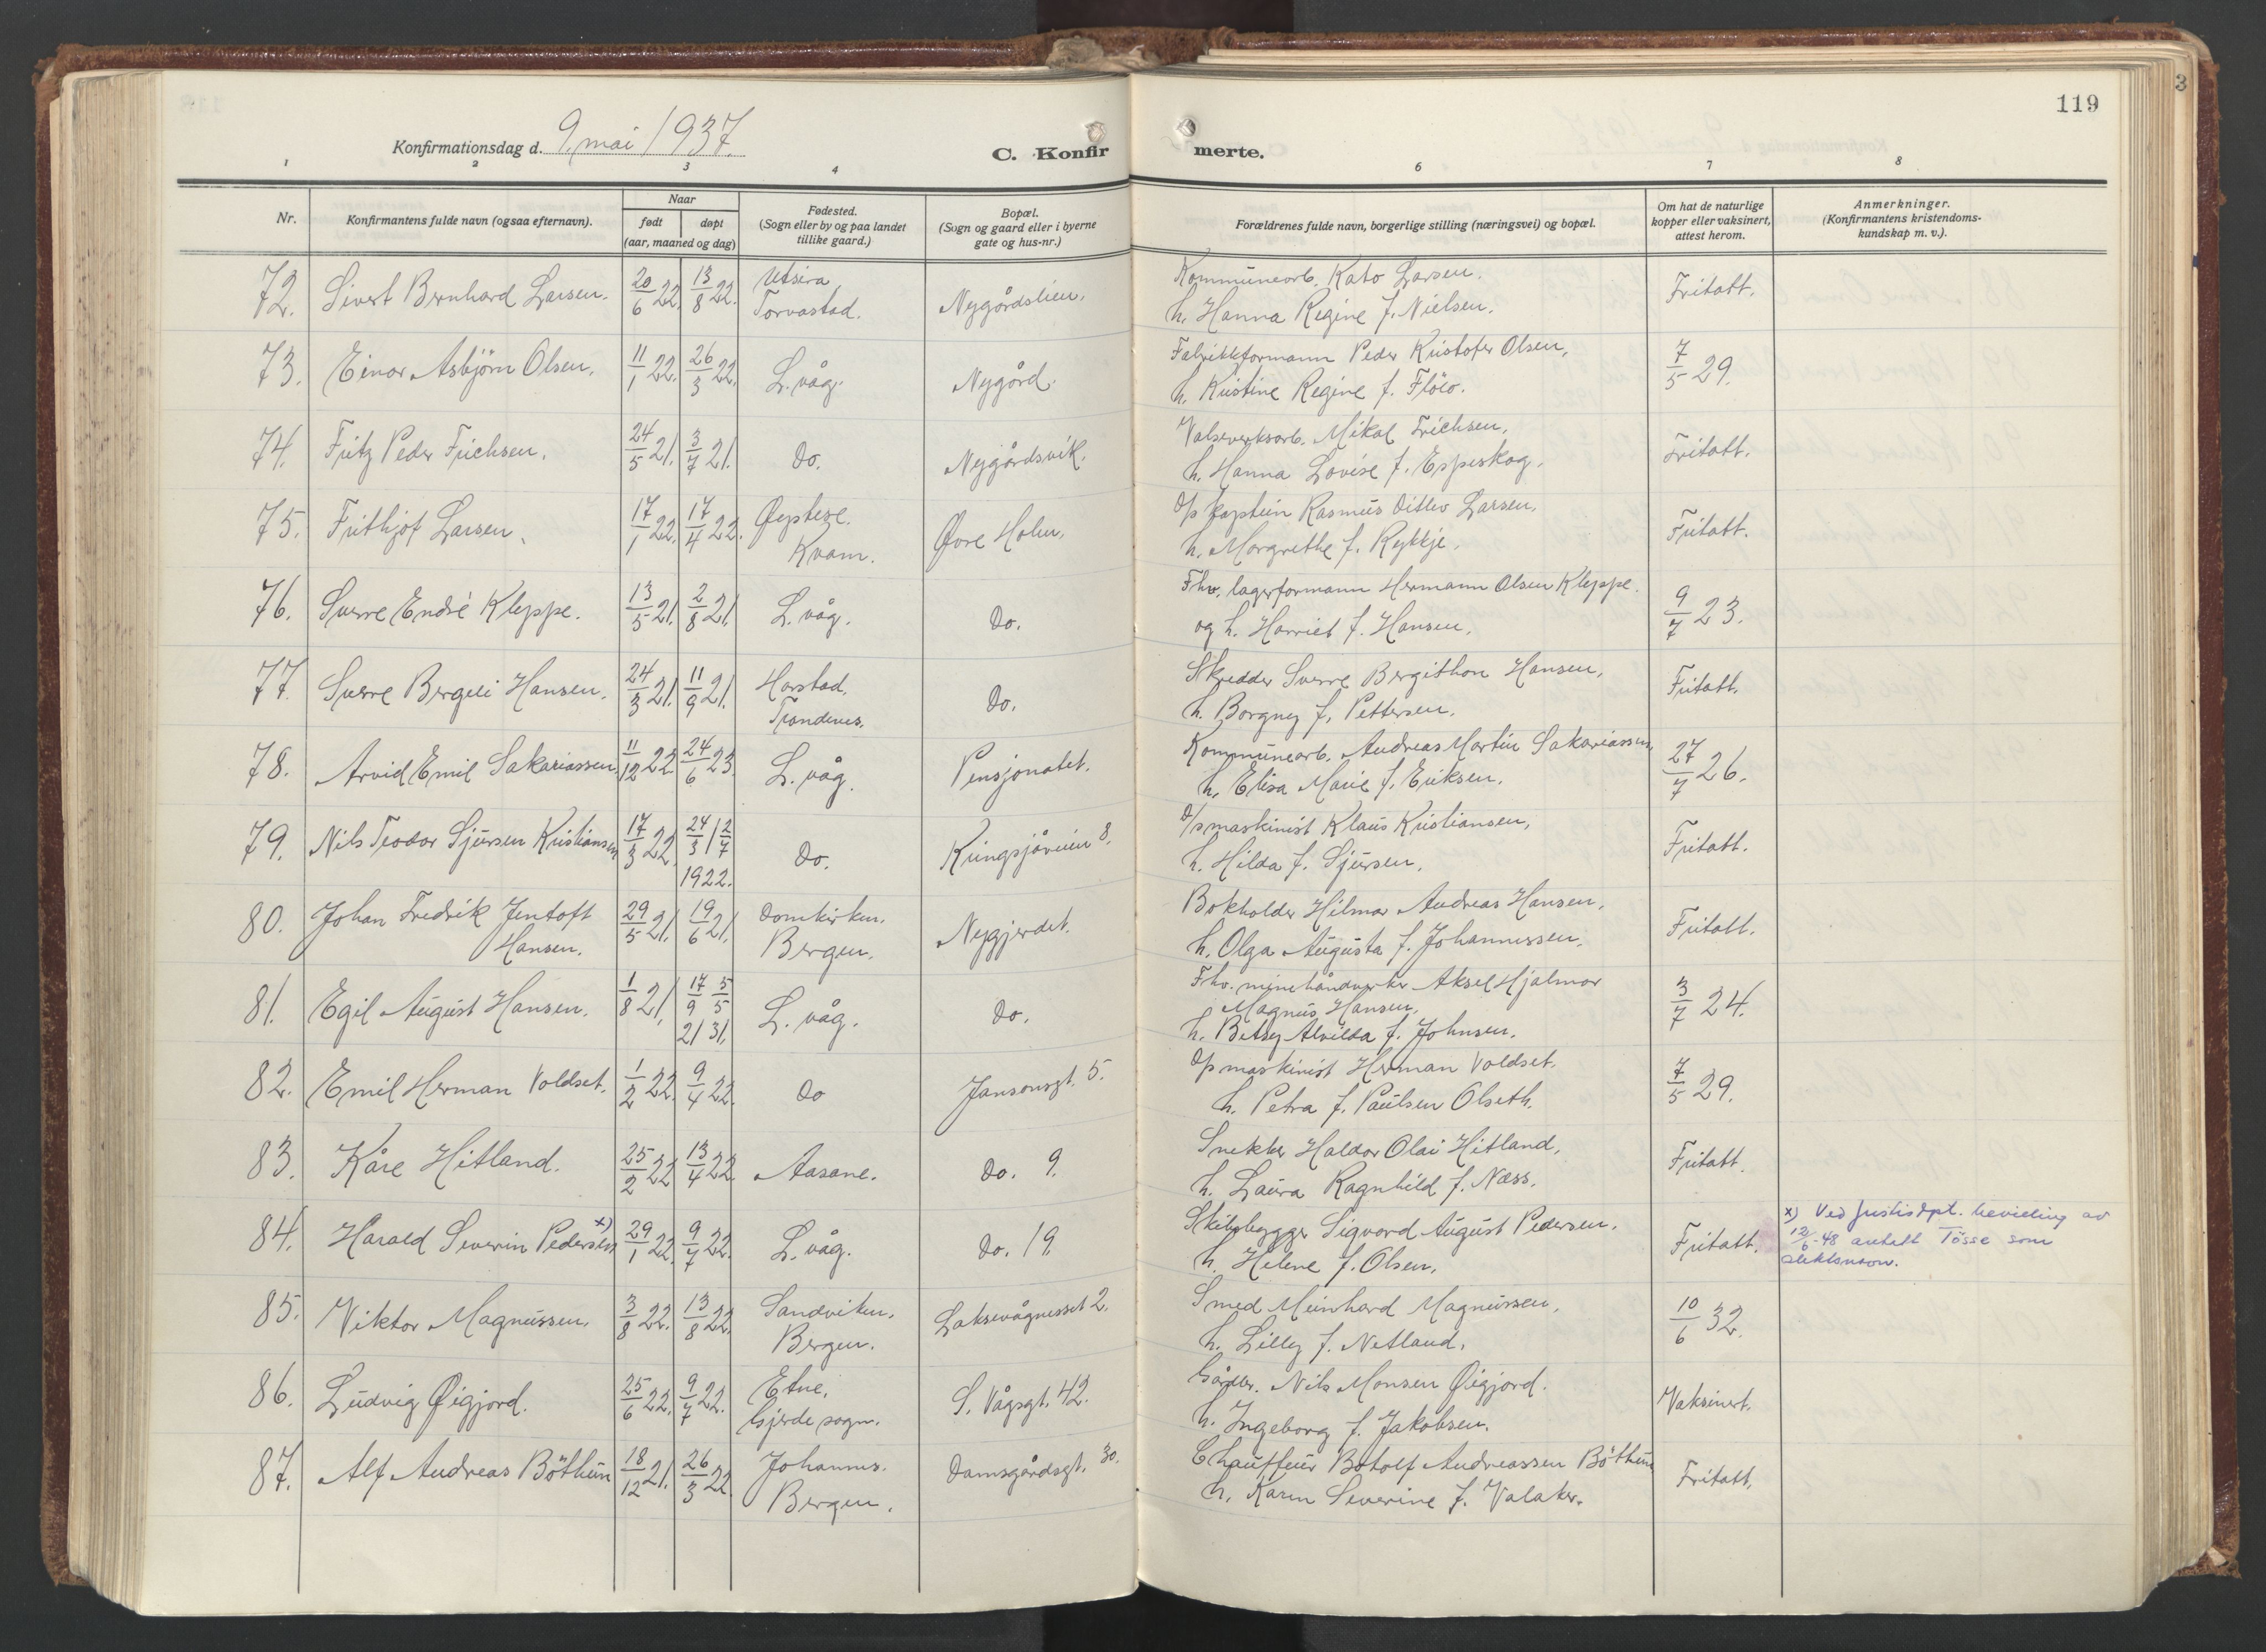 119
3
Konfirmationsdag d. 9. mai 1937.
C. Konfir
merte.
1 2 3 4 6 7 8
Nr.
Konfirmantens fulde navn (ogsaa efternavn).
Naar
født døpt
(aar, maaned og dag)
Fødested.
(Sogn eller by og paa landet
tillike gaard.)
Bopæl.
(Sogn og gaard eller i byerne
gate og hus-nr.)
Forældrenes fulde navn, borgerlige stilling (næringsvei) og bopæl.
Om hat de naturlige
kopper eller vaksinert,
attest herom.
Anmerkninger.
(Konfirmantens kristendoms-
kundskap m. v.).
72. Sivert Bernhard Larsen. 20/6 22. 13/8 22. Utsira, Torvastad. Nygårdslien. Kommunearb. Kato Larsen. Fritatt.
h. Hanna Regine f. Nielsen.
73. Einar Asbjörn Olsen. 11/1 22. 26/3 22. L.våg. Nygård. Fabrikkformann Peder Kristofer Olsen, 7/5 29.
h. Kristine Regine f. Flölo.
74. Fritz Peder Frichsen. 24/5 21. 3/7 21. Do. Nygårdsvik. Valseverksarb. Mikal Frichsen, Fritatt.
h. Hanna Lovise f. Espeskog.
75. Frithjof Larsen. 17/1 22. 17/4 22. Øystese. Kvam. Øvre Holm. D/s kaptein Rasmus Ditlev Larsen, Fritatt.
h. Margrethe f. Rykkje.
76. Sverre Endré Kleppe. 13/5 21. 2/8 21. L.våg. Do. Fhv. lagerformann Hermann Olsen Kleppe. 9/7 23.
og h. Harriet f. Hansen.
77. Sverre Bergeli Hansen. 24/3 21. 11/9 21. Harstad, Trondenes. Do. Skredder Sverre Bergithon Hansen, Fritatt.
h. Borgny f. Pettersen.
78. Arvid Emil Sakariassen 11/12 22. 24/6 23. L.våg. Pensjonatet. Kommunearb. Andreas Martin Sakariassen 27/7 26.
h. Elisa Marie f. Eriksen.
79. Nils Teodor Sjursen Kristiansen 17/3 22. 24/3 | 2/7 1922. Do. Kringsjåveien 8. D/s maskinist Klaus Kristiansen, Fritatt.
h. Hilda f. Sjursen.
80. Johan Fredrik Jentoft 29/5 21. 19/6 21. Domkirken. Bergen. Nygjerdet. Bokholder Hilmar Andreas Hansen, Fritatt.
Hansen. h. Olga Augusta f. Johannessen.
81. Egil August Hansen. 1/8 21. 17/9 21 5/5 31. L.våg. Do. Fhv. minehåndverker Aksel Hjalmar 3/7 24.
Magnus Hansen,
h. Betsy Alvilda f. Johnsen.
82. Emil Herman Voldset. 1/2 22. 9/4 22. Do Jansonsgt. 5. D/s maskinist Herman Voldset. 7/5 29.
h. Petra f. Paulsen Olseth.
83. Kåre Hitland. 25/2 22 13/4 22. Aasane. Do. 9. Snekker Haldor Olai Hitland, Fritatt.
h. Laura Ragnhild f. Næss.
84. Harald Severin Pedersen x) 29/1 22. 9/7 22. L.våg. Do. 19. Skibsbygger Sigvard August Pedersen. Fritatt. x) Ved Justisdpt. bevilling av
h. Helene f. Olsen. 12/6-48 antatt Tösse som
slektsnavn.
85. Viktor Magnussen. 3/8 22. 13/8 22. Sandviken. Bergen. Laksevågnesset 2. Smed Meinhard Magnussen, 10/6 32.
h. Lilly f. Netland.
86. Ludvig Øigjord. 25/6 22. 9/7 22. Etne, Gjerde sogn. S. Vågsgt. 42. Gårdbr. Nils Monsen Øigjord. Vaksinert.
h. Ingeborg f. Jakobsen.
87. Alf Andreas Böthun 18/12 21. 26/3 22. Johannes. Bergen. Damsgårdsgt. 30. Chauffeur Botolf Andreassen Böthun Fritatt.
h. Karen Severine f. Valaker.